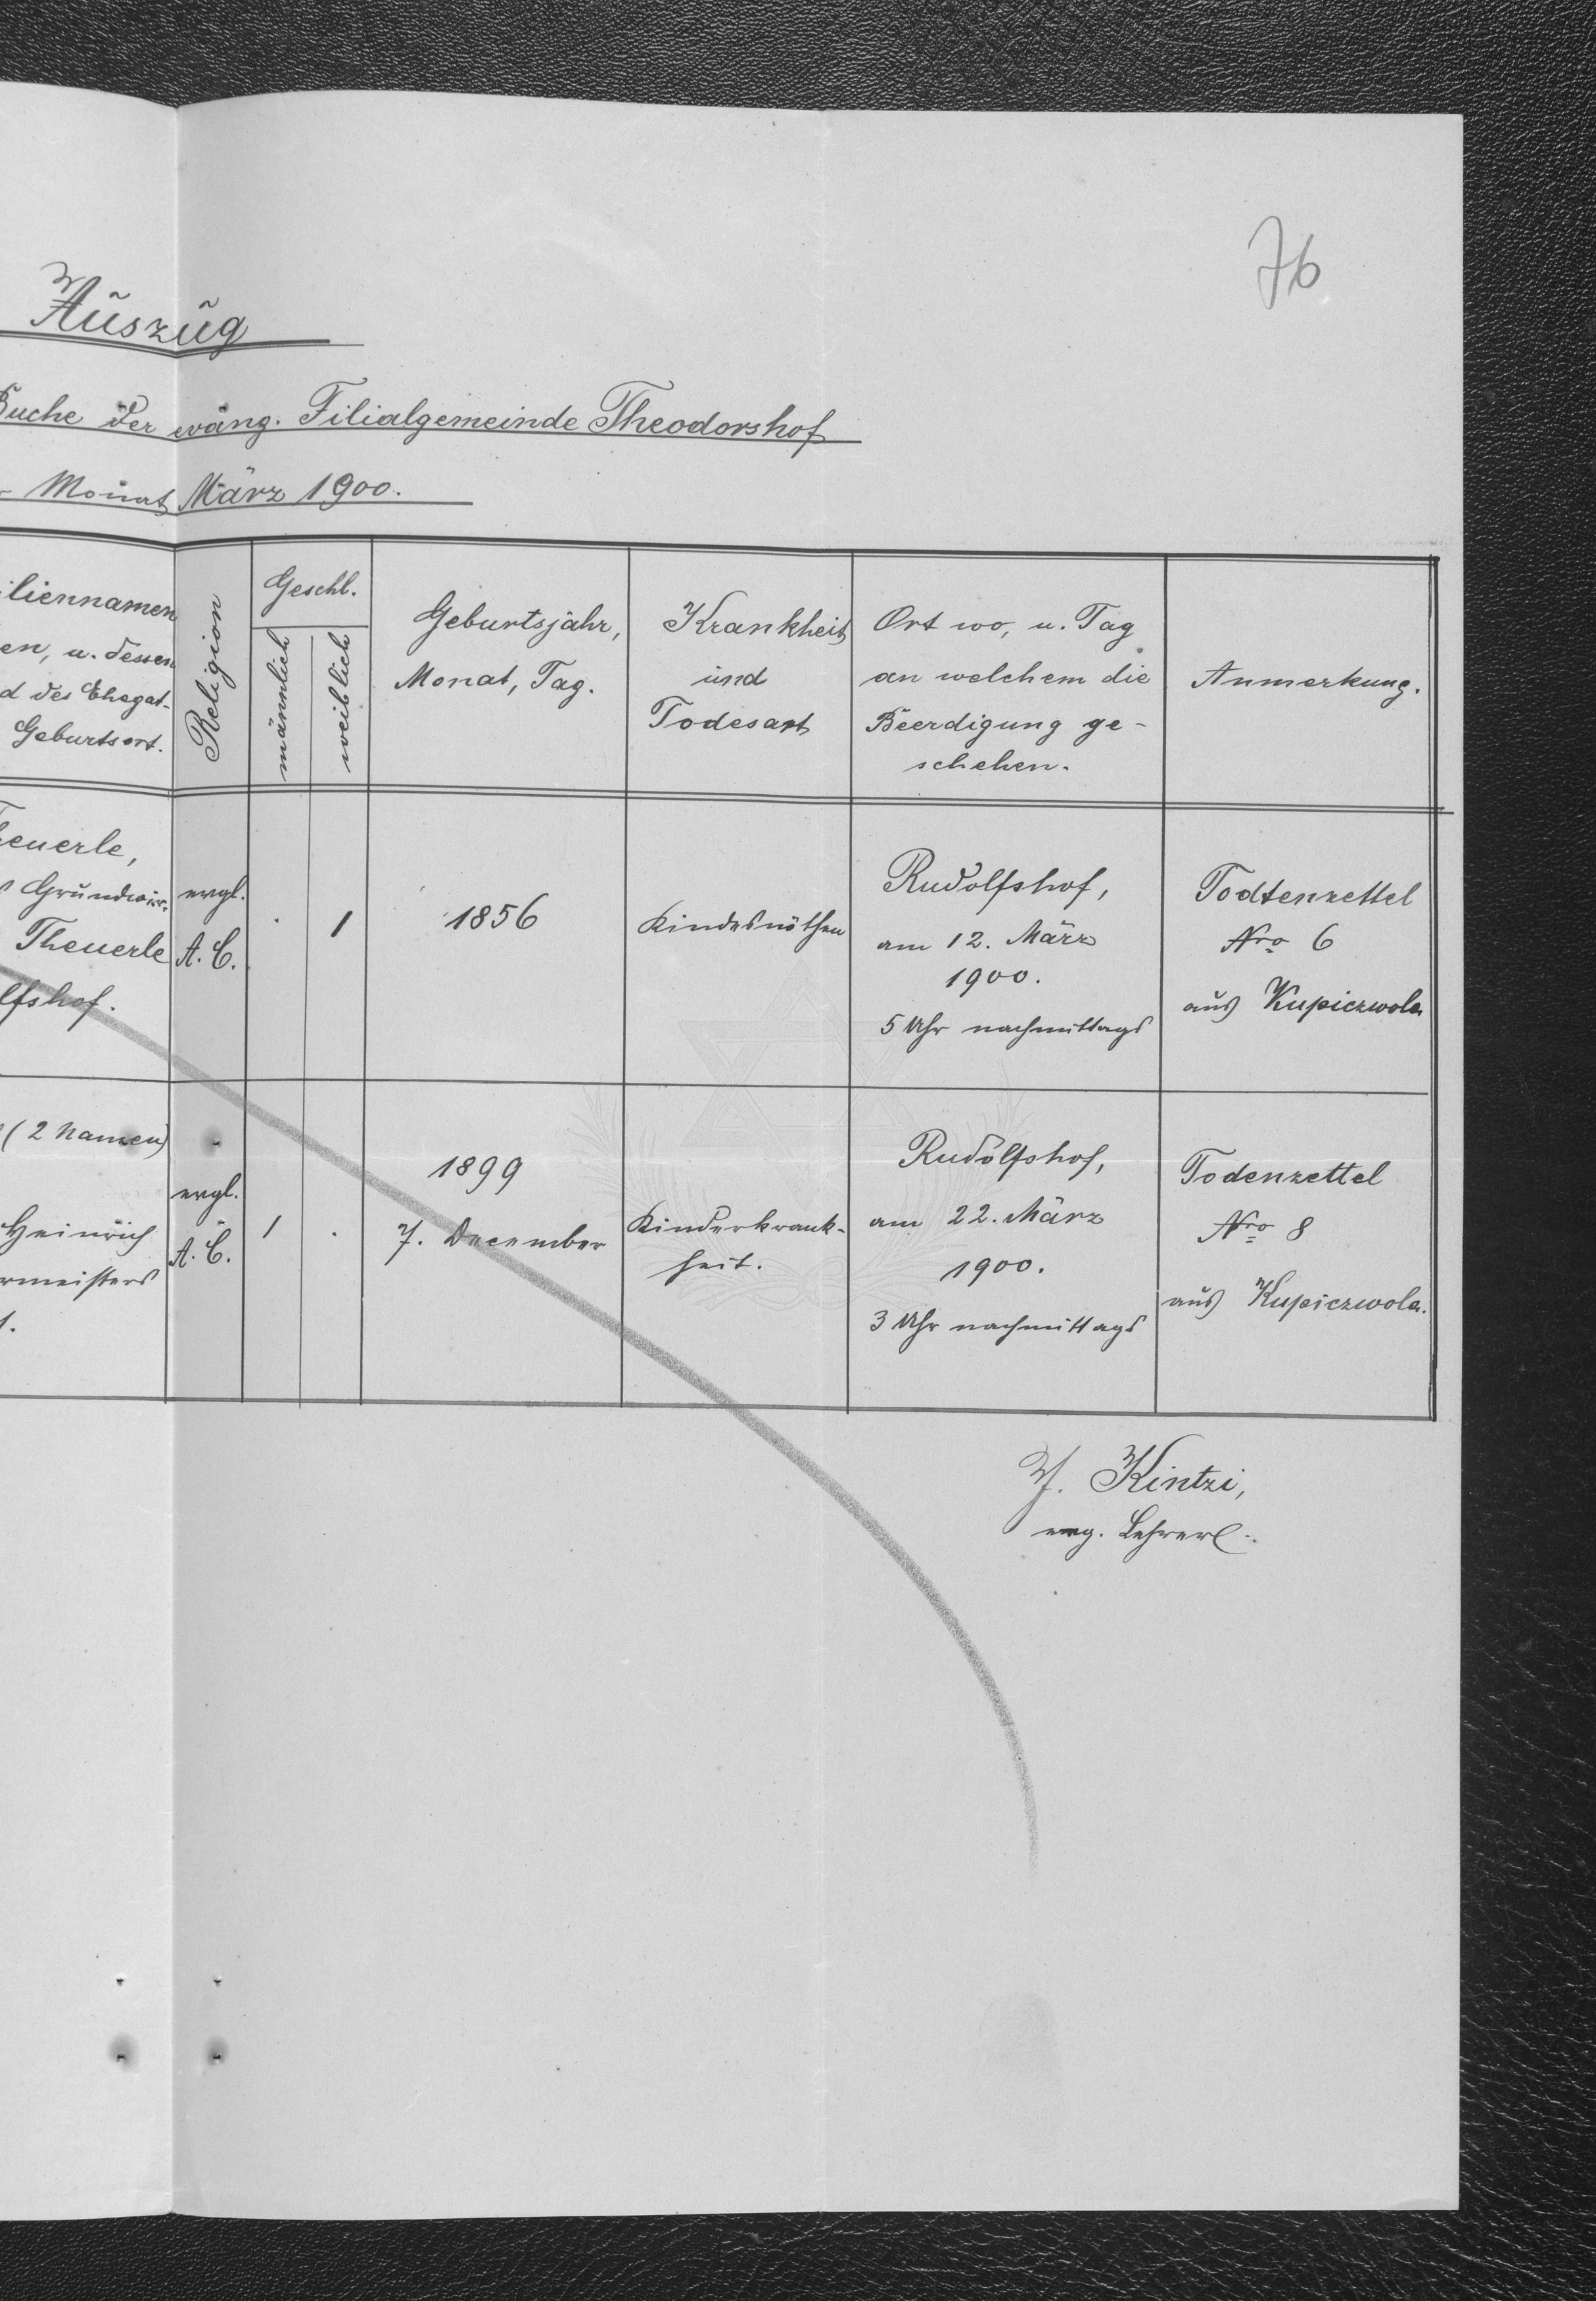 76
Auszug
Buche der evang. Filialgemeinde Theodorshof
Monat März 1900.
iliennamen
en, u. dessen
d des Ehegat-
Geburtsort.
Religion
Geschl.
männlich
weiblich
Geburtsjahr,
Monat, Tag.
Krankheit
und
Todesart
Ort wo, u. Tag
an welchem die
Beerdigung ge-
schehen.
Anmerkung.
heuerle,
Grundwir.
Theuerle
lfshof.
evgl.
A. C.
.
1
1856
Kindesnöthen
Rudolfshof,
am 12. März
1900.
5 Uhr nachmittags
Todtenzettel
Nro 6
aus Kupiczwola
(2 Namen)
Heinrich
rmeisters
evgl.
A. C.
1
.
1899
7. December
Kinderkrank-
heit.
Rudolfshof,
am 22. März
1900.
3 Uhr nachmittags
Todenzettel
Nro 8
aus Kupiczwola.
J. Kintzi,
evg. Lehrer